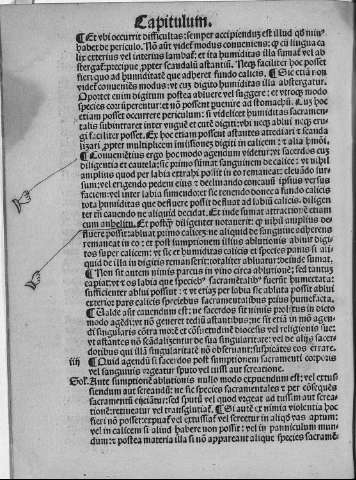 Capitulum.
¶ Et vbi occurrit difficultas: semper accipiendum est illud qd min9
haber de periculo. Nō aūt videt modus conueniens: q cū lingua ca
lix exterius vel interius lambat. et ita humiditas illa sumat vel ab
stergat: precipue ppter scandalū astantiū. Neq3 faciliter hoc posset
fieri quo ad humiditatē que adheret fundo calicis. ¶ Sic etiā non
videt conueniēs modus: vt cum digito humiditas illa abstergatur.
Oportet enim digitum postea ablui vel suggere: et vtroq3 modo
species corrūperentur: et nō possent puenire ad stomachū. Cū3 hoc
etiam posset occurrere periculum: si videlicet humiditas sacramen-
talis subintraret inter vnguē et cutē digiti: vbi neq3 ablui neq3 erui
faciliter posset. Ex hoc etiam possent astantes attediari et scanda
lizari propter multiplicem imissionē digiti in calicem: et alia hmōi.
¶ Conueniētius ergo hoc modo agendum videtur: vt sacerdos cum
diligentia et cautela: sic primo sumat sanguinem de calice: vt nihil
amplius quod per labia extrahi possit in eo remaneat: eleuādo sur-
sum: vel erigendo pedem eius: et declinando concauū ipsius versus
faciem: vel inter labia sumendo: et sic tenendo donec a fundo calicis
tota humiditas que defluere possit defluat ad labiū calicis. diligen
ter cauendo ne aliquid decidat. Et inde sumat attractionē etiam
cum anhelitu. Et postq diligenter notauerit: q nihil amplius de-
fluere possit: abluat primo calicem: ne aliquid de sanguine adherens
remaneat in eo: et post sumptionem illius ablutionis abluat digi-
tos super calicem: vt sic et humiditas calicis et species panis si ali-
quid de illa in digitis remanserit: totaliter abluatur: deinde sumat.
¶ Non sit autem nimis parcus in vino circa ablutionē: sed tantum
capiat: vt os labia que specieb9 sacramētalib9 fuerūt humectata:
sufficienter ablui possint: et vt etiam per labia sic abluta possit ablui
exterior pars calicis speciebus sacramentalibus prius humefacta.
¶ Valde aūt cauendum est: ne sacerdos sit nimis prolixus in dicto
modo agēdi: vt nō generet tediū astantibus: ne sit etiā in mō agen-
di singularis cōtra morē et cōsuetudinē diocesis vel religionis sue:
vt astantes nō scādalizentur de sua singularitate: vel de alijs sacer-
dotibus qui illā singularitatē nō obseruant: suspicātes eos errare.
iiij ¶ Quid agendū si sacerdos post sumptionem sacramenti corporis
vel sanguinis vrgeatur sputo vel tussi aut screatione.
Sol. Ante sumptionē ablutionis nullo modo expuendum est: vel extus
siendum aut screandū: ne sic species sacramentales et per cōsequēs
sacramentū eijciātur: sed sputū vel quod vrgeat ad tussim aut screa-
tionem: retineatur vel transglutiat. ¶ Si autē ex nimia violentia hoc
fieri nō posset: expuat vel extussiat vel screetur in aliqd vas aptum:
vel in calicem si aliud habere nō posset: vel in panniculum mun-
dum: et postea materia illa si nō appareant alique species sacramē-